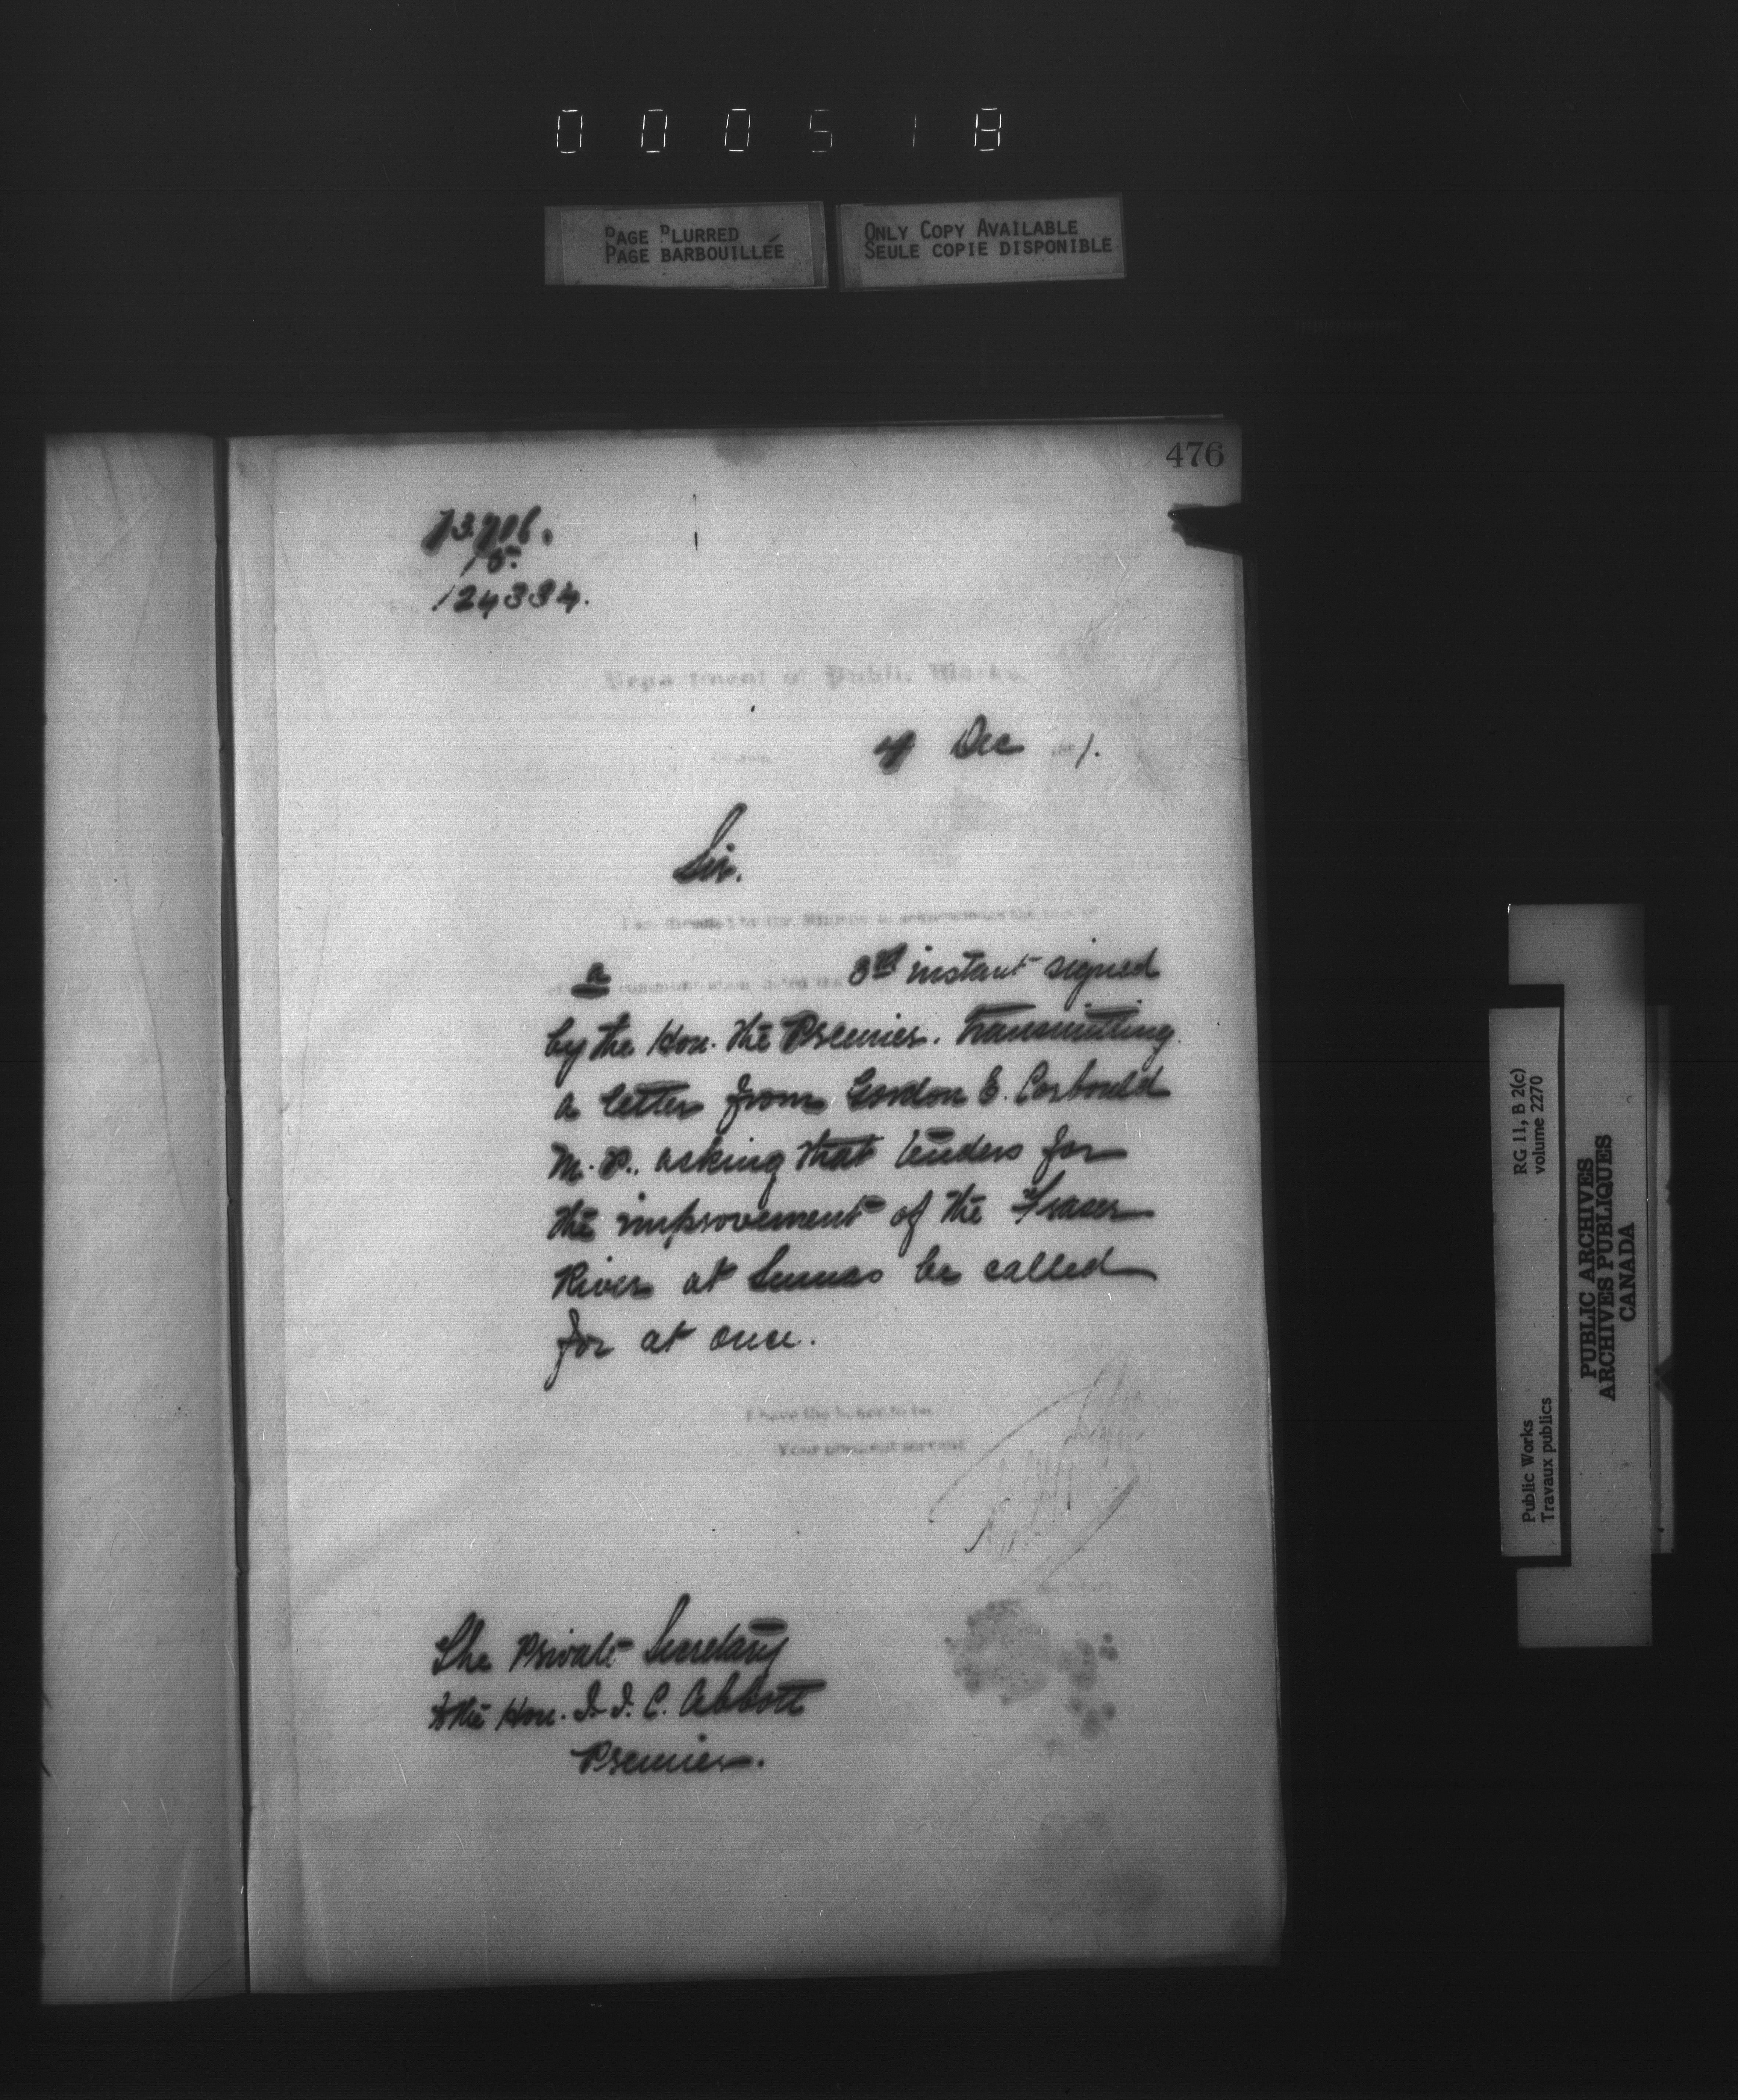 000518
PAGE BLURRED
PAGE BARBOUILLÉE
ONLY COPY AVAILABLE
SEULE COPIE DISPONIBLE
476
15.
124334.
Department of Public Works.
4 Dec 1.
Sir.
I am directed by the Minister to acknowledge the receipt
of a communication dated the 3rd instant signed
by the Hon. the Premier. transmitting
a letter from Gordon E. Corbould
M.P. asking that tenders for
the improvement of the Fraser
River at Sumas be called
for at once.
I have the honor to be,
Your obedient servant
The Private Secretary
to the Hon. J. J. C. Abbott
Premier.
RG 11, B 2(c)
volume 2270
Public Works
Travaux publics
PUBLIC ARCHIVES
ARCHIVES PUBLIQUES
CANADA